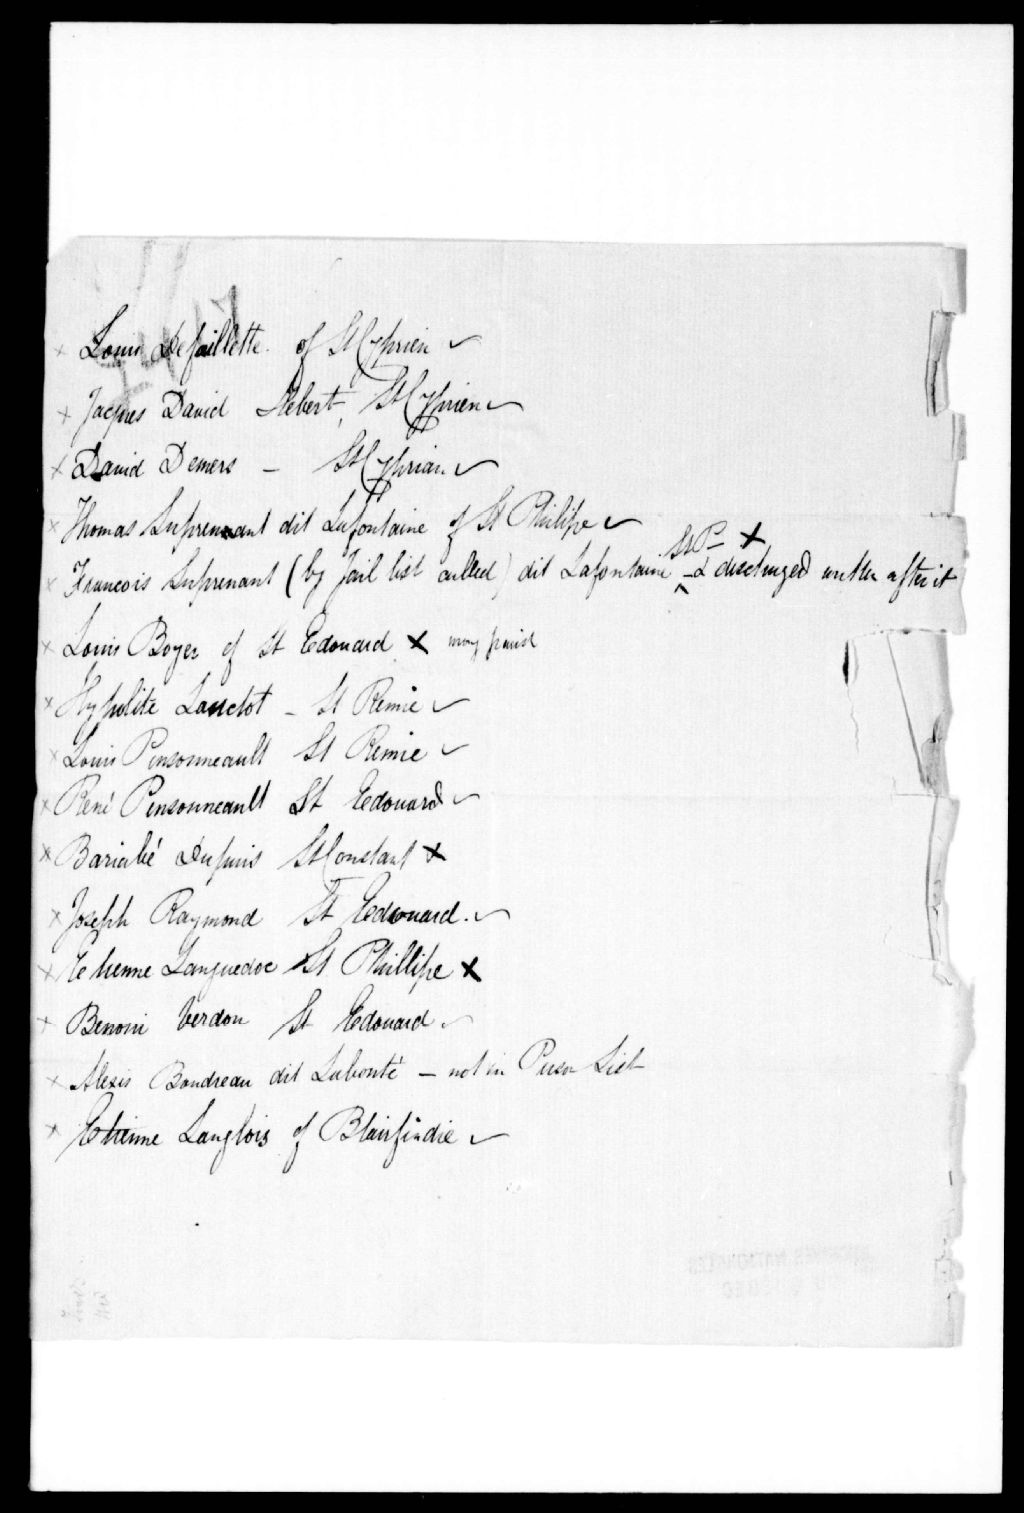 x Louis Defaillette of St Cyprien ✓
x Jacques David Hebert, St Cyprien ✓
x David Demers - St Cyprian ✓
x Thomas Suprennant dit Lafontaine of St Philipe ✓
St P- x
x Francois Suprenant (by Jail list called) dit Lafontaine ‸ -& discharged written after it
x Louis Boyer of St Edouard x
x Hypolite Lanctot - St Remie ✓
x Louis Pinsonneault St Remie ✓
x René Pinsonneault St Edouard ✓
x Dupuis St Constant x
x Joseph Raymond St Edouard. ✓
x Etienne Languedoc St Phillipe x
x Benoni Verdon St Edouard ✓
x Alexis Boudreau dit Labonté - not in List
x Etienne Langlois of Blairfindie ✓